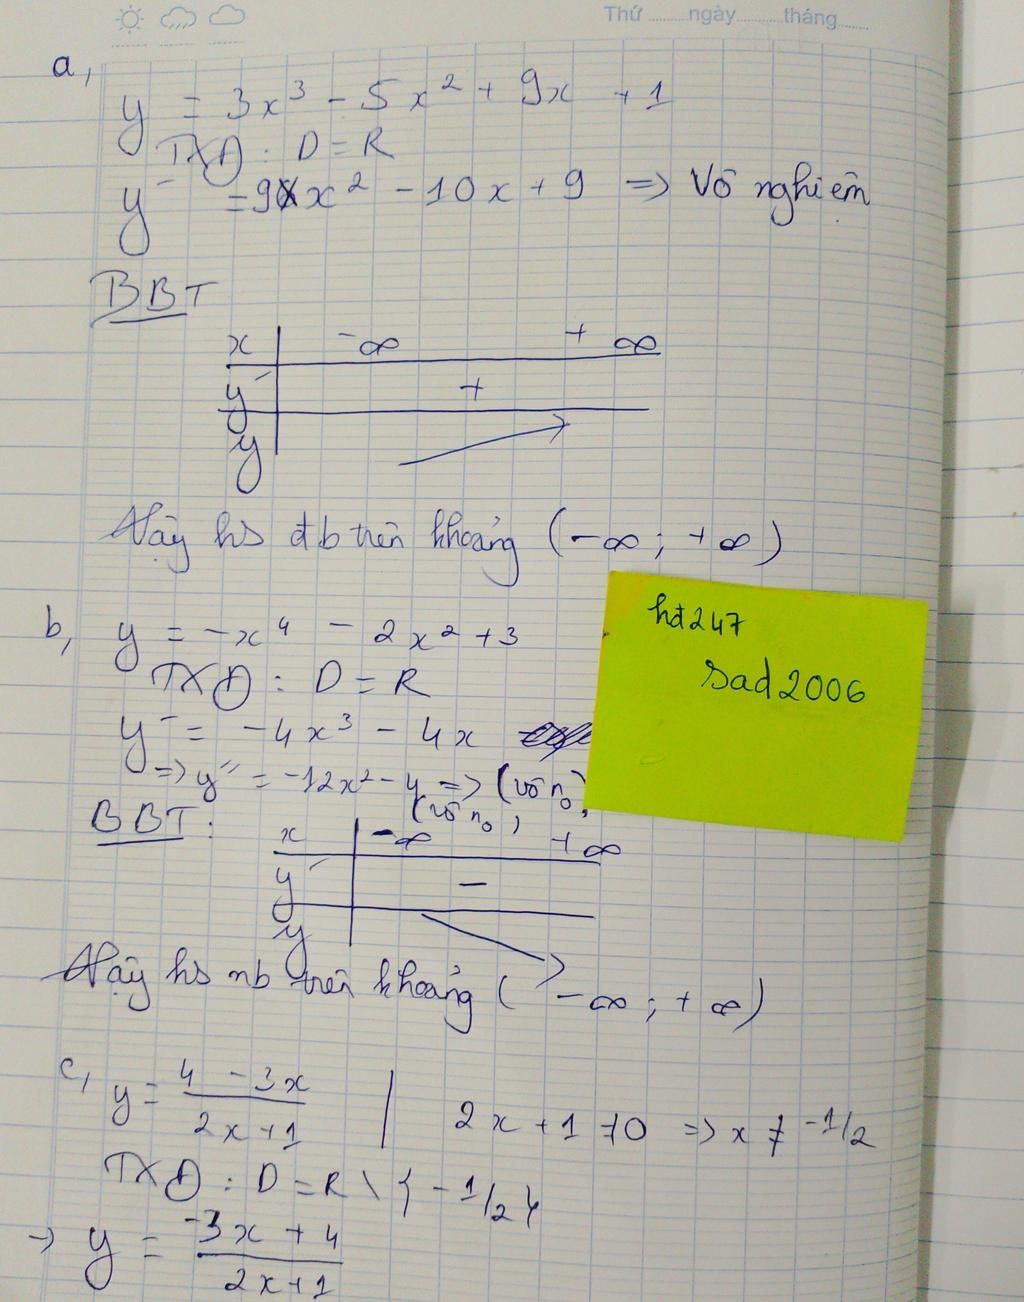 Thứ ........ ngày ........ tháng ........
a,
y = 3x³ - 5x² + 9x + 1
TXĐ : D = R
y' = 9x² - 10x + 9 => Vô nghiệm
BBT
x -∞ +∞
y' +
y
Vậy hs đb trên khoảng (-∞ ; +∞)
b, y = -x⁴ - 2x² + 3
TXĐ : D = R
y' = -4x³ - 4x
=> y'' = -12x² - 4 => (vô n₀)
(vô n₀)
BBT :
x -∞ +∞
y' -
y
Vậy hs nb trên khoảng (-∞ ; +∞)
hđ247
sad2006
c, y = (4 - 3x)/(2x + 1) | 2x + 1 ≠ 0 => x ≠ -1/2
TXĐ : D = R \ { -1/2 }
→ y = (-3x + 4)/(2x + 1)